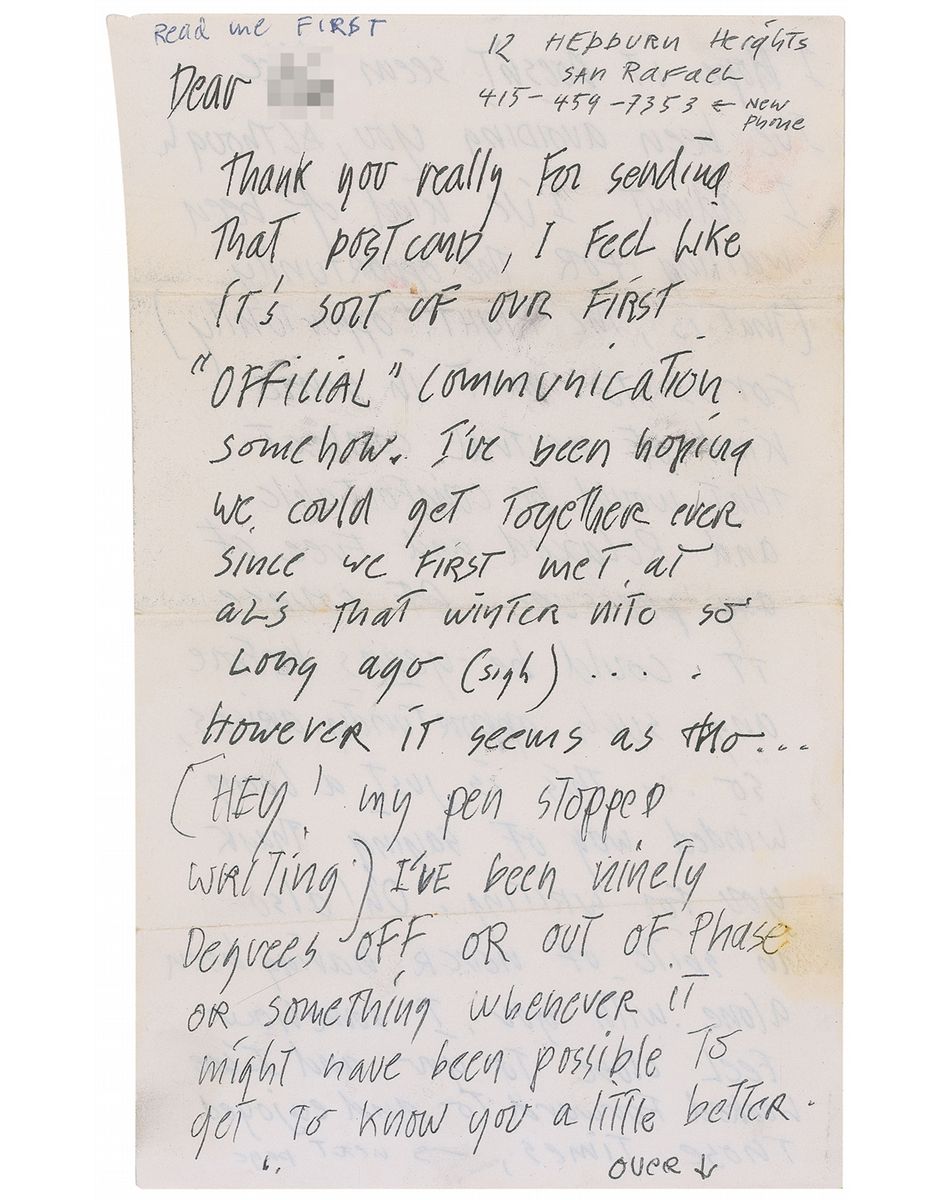 Read me FIRST
12 HEPBURN Heights
SAN Rafael
415-459-7353 ← NEW
Phone
Dear
Thank you really For sending
That postcard, I Feel Like
it's sort of our First
"OFFiciAL" communication
somehow. I've been hoping
we could get Together ever
since we First met at
aL's that winter nite so
Long ago (sigh) .....
However it seems as tho...
(HEY! my pen stopped
writing) I'VE been ninety
Degrees OFF OR out of Phase
OR something whenever it
might have been possible To
get To know you a little better.
over ↓